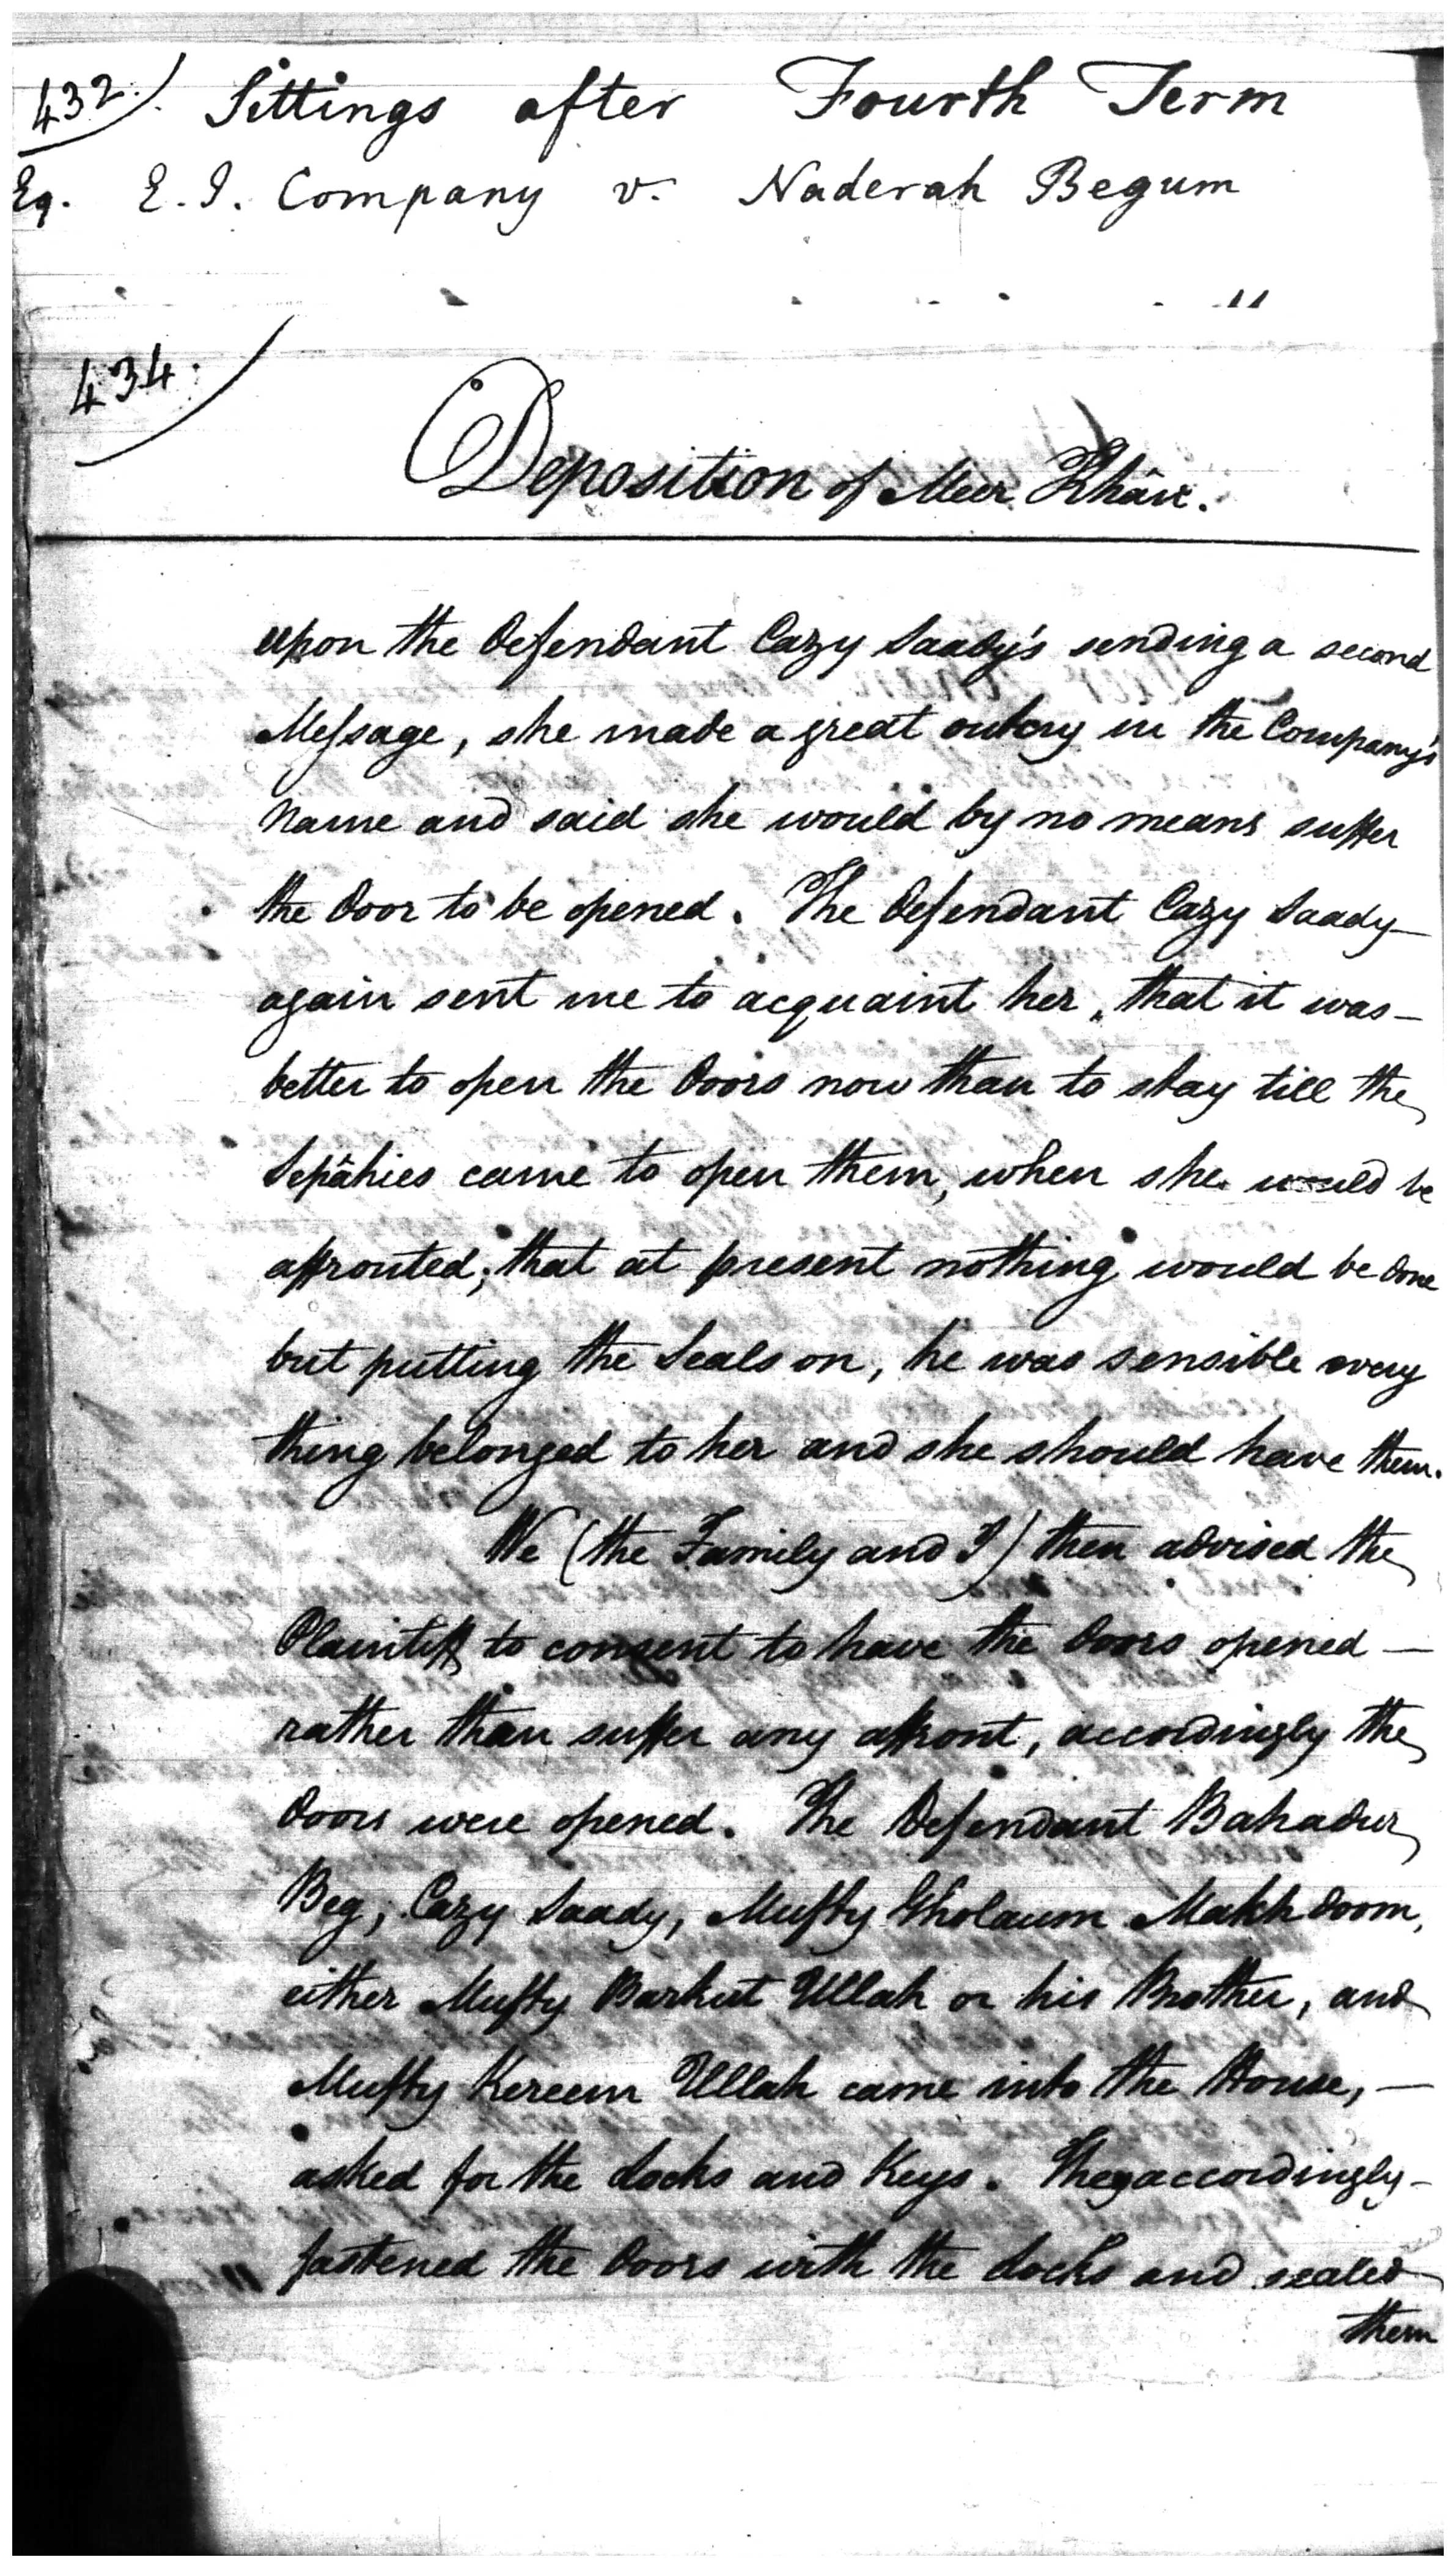 432.
Sittings after Fourth Term
Eq. E. I. Company v. Naderah Begum
434.
Deposition of Meer Khân.
upon the Defendant Cazy Saady's sending a second
Message, she made a great outcry in the Company's
Name and said she would by no means suffer
the Door to be opened. The Defendant Cazy Saady —
again sent me to acquaint her, that it was —
better to open the Doors now than to stay till the
Sepâhies came to open them, when she would be
affronted; that at present nothing would be done
but putting the Seals on, he was sensible every
thing belonged to her and she should have them.
We (the Family and I) then advised the
Plaintiff to consent to have the Doors opened —
rather than suffer any affront, accordingly the
Doors were opened. The Defendant Bahadur
Beg, Cazy Saady, Mufty Gholaum Makhdoom,
either Mufty Barkut Ullah or his Brother, and
Mufty Kereem Ullah came into the House, —
asked for the Locks and Keys. They accordingly —
fastened the Doors with the Locks and sealed
them